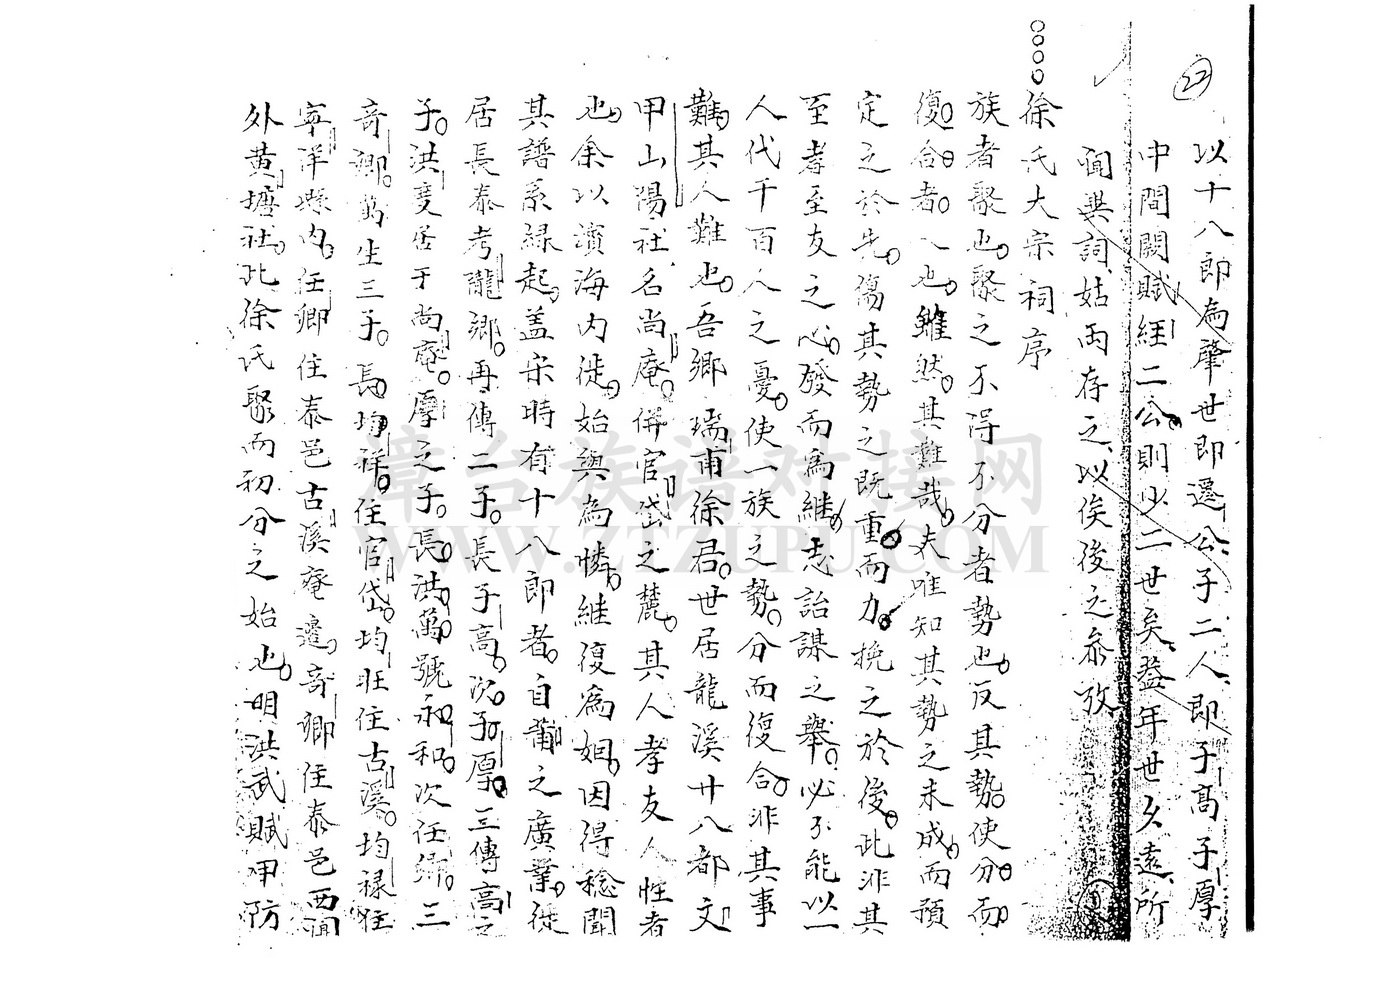 22
以十八郎為肇世即遷公子二人即子高子厚
中間闕賦經二公則少二世矣益年世久遠所
聞與詞姑两存之以俟後之叅攷
徐氏大宗祠序
族者聚也聚之不得不分者勢也反其勢使分而
復合者人也雖然其難哉夫唯知其勢之未成而預
定之於先傷其勢之既重而力挽之於後此非其
至孝至友之心發而為維志詒謀之舉必不能以一
人代千百人之憂使一族之勢分而復合非其事
難其人難也吾鄉瑞甫徐君世居龍溪廿八都文
甲山陽社名尚庵併官岱之麓其人孝友人性者
也余以濱海内徙始與為憐継復為姻因得稔聞
其譜系緣起盖宋時有十八郎者自莆之廣業徙
居長泰考瓏鄉再傳二子長子高次子厚三傳高之
子洪變居于尚庵厚之子長洪萬號永和次任卿三
奇卿萬生三子長均祥住官岱均旺住古溪均禄住
寧洋縣内任卿住泰邑古溪庵邊奇卿住泰邑西湎
外黄塘社此徐氏聚而初分之始也明洪武賦甲防
漳台族谱对接网
WWW.ZTZUPU.COM